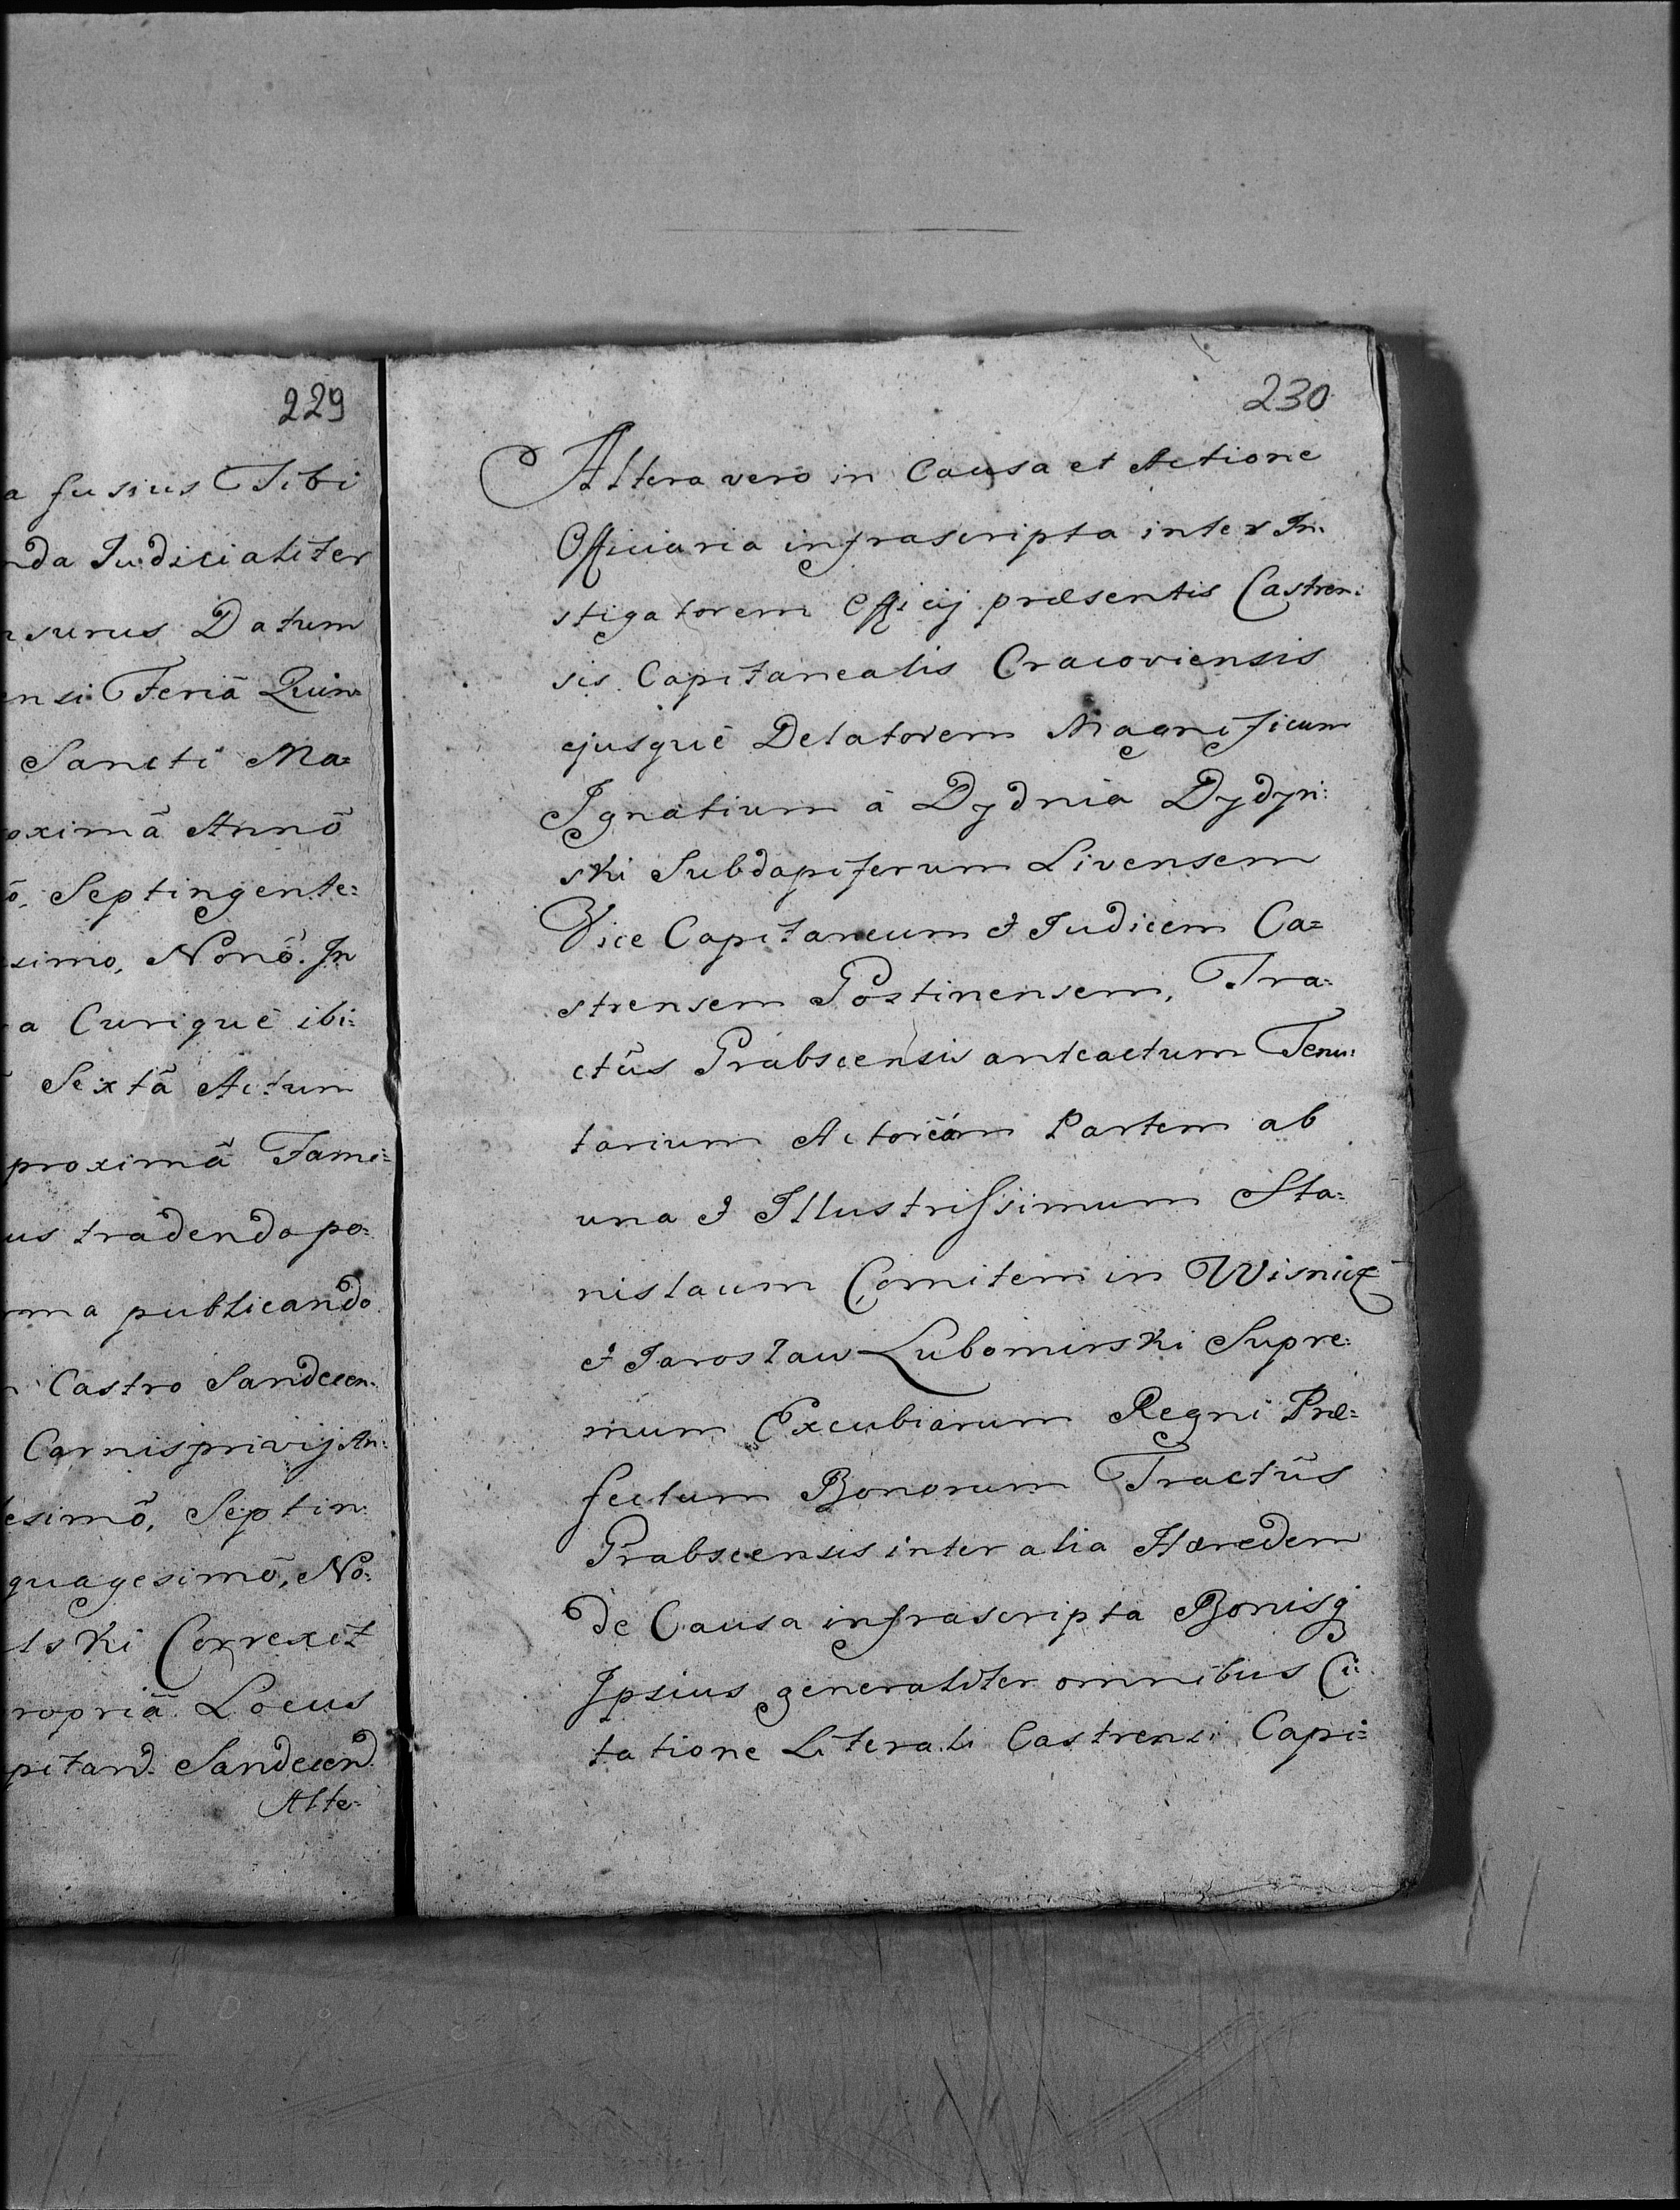 229
a fusius Tibi
nda Judicialiter
surus Datum
ensi Feriâ Quin=
Sancti Ma=
oximâ Annô
ô, Septingente=
simo, Nonô. In
a Curiquè ibi=
Sextâ Actum
proximâ Fami=
us tradendo po=
ma publicando
Castro Sandecen=
Carnisprivij An=
esimô, Septin=
quagesimô, No=
lski Correxit
ropriâ. Locus
pitand. Sandecend.
Alte=
230
Altera vero in Causa et Actione
Officiaria infrascripta inter In=
stigatorem Officij præsentis Castren=
sis Capitanealis Cracoviensis
ejusquè Delatorem Magnificum
Ignatium à Dydnia Dydyn=
ski Subdapiferum Livensem
Vice Capitaneum & Judicem Ca=
strensem Postinensem, Tra=
ctûs Grabscensis anteactum Tenu=
tarium Actoream Partem ab
una & Illustrissimum Sta=
nislaum Comitem in Wisnicz
& Jarosław Lubomirski Supre=
mum Excubiarum Regni Præ=
fectum Bonorum Tractûs
Grabscensis inter alia Hæredem
de Causa infrascripta Bonisq
Ipsius generaliter omnibus Ci=
tatione Literali Castrensi Capi=